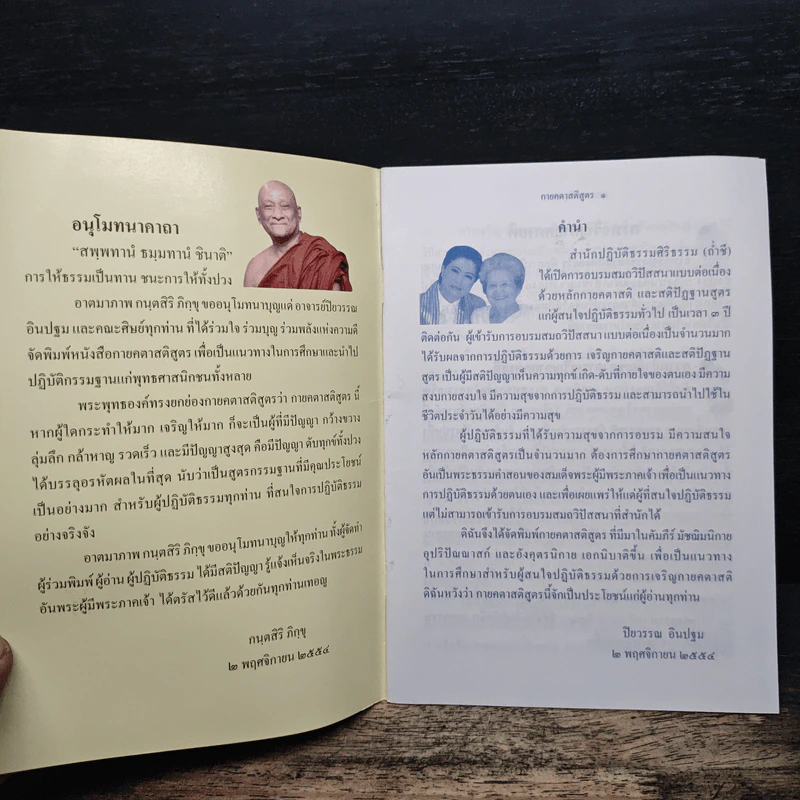 อนุโมทนาคาถา
“สพฺพทานํ ธมฺมทานํ ชินาติ”
การให้ธรรมเป็นทาน ชนะการให้ทั้งปวง
อาตมาภาพ กนฺตสิริ ภิกฺขุ ขออนุโมทนาบุญแด่ อาจารย์ปิยวรรณ
อินปฐม และคณะศิษย์ทุกท่าน ที่ได้ร่วมใจ ร่วมบุญ ร่วมพลังแห่งความดี
จัดพิมพ์หนังสือกายคตาสติสูตร เพื่อเป็นแนวทางในการศึกษาและนำไป
ปฏิบัติกรรมฐานแก่พุทธศาสนิกชนทั้งหลาย
พระพุทธองค์ทรงยกย่องกายคตาสติสูตรว่า กายคตาสติสูตร นี้
หากผู้ใดกระทำให้มาก เจริญให้มาก ก็จะเป็นผู้ที่มีปัญญา กว้างขวาง
ลุ่มลึก กล้าหาญ รวดเร็ว และมีปัญญาสูงสุด คือมีปัญญา ดับทุกข์ทั้งปวง
ได้บรรลุอรหัตผลในที่สุด นับว่าเป็นสูตรกรรมฐานที่มีคุณประโยชน์
เป็นอย่างมาก สำหรับผู้ปฏิบัติธรรมทุกท่าน ที่สนใจการปฏิบัติธรรม
อย่างจริงจัง
อาตมาภาพ กนฺตสิริ ภิกฺขุ ขออนุโมทนาบุญให้ทุกท่าน ทั้งผู้จัดทำ
ผู้ร่วมพิมพ์ ผู้อ่าน ผู้ปฏิบัติธรรม ได้มีสติปัญญา รู้แจ้งเห็นจริงในพระธรรม
อันพระผู้มีพระภาคเจ้า ได้ตรัสไว้ดีแล้วด้วยกันทุกท่านเทอญ
กนฺตสิริ ภิกฺขุ
๒ พฤศจิกายน ๒๕๕๔
กายคตาสติสูตร ๑
คำนำ
สำนักปฏิบัติธรรมศิริธรรม (ถ้ำชี)
ได้เปิดการอบรมสมถวิปัสสนาแบบต่อเนื่อง
ด้วยหลักกายคตาสติ และสติปัฏฐานสูตร
แก่ผู้สนใจปฏิบัติธรรมทั่วไป เป็นเวลา ๓ ปี
ติดต่อกัน ผู้เข้ารับการอบรมสมถวิปัสสนา แบบต่อเนื่องเป็นจำนวนมาก
ได้รับผลจากการปฏิบัติธรรมด้วยการ เจริญกายคตาสติและสติปัฏฐาน
สูตร เป็นผู้มีสติปัญญาเห็นความทุกข์ เกิด-ดับที่กายใจของตนเอง มีความ
สงบกายสงบใจ มีความสุขจากการปฏิบัติธรรม และสามารถนำไปใช้ใน
ชีวิตประจำวันได้อย่างมีความสุข
ผู้ปฏิบัติธรรมที่ได้รับความสุขจากการอบรม มีความสนใจ
หลักกายคตาสติสูตรเป็นจำนวนมาก ต้องการศึกษากายคตาสติสูตร
อันเป็นพระธรรมคำสอนของสมเด็จพระผู้มีพระภาคเจ้า เพื่อเป็นแนวทาง
การปฏิบัติธรรมด้วยตนเอง และเพื่อเผยแพร่ให้แด่ผู้ที่สนใจปฏิบัติธรรม
แต่ไม่สามารถเข้ารับการอบรมสมถวิปัสสนาที่สำนักได้
ดิฉันจึงได้จัดพิมพ์กายคตาสติสูตร ที่มีมาในคัมภีร์ มัชฌิมนิกาย
อุปริปัณณาสก์ และอังคุตรนิกาย เอกนิบาตขึ้น เพื่อเป็นแนวทาง
ในการศึกษาสำหรับผู้สนใจปฏิบัติธรรมด้วยการเจริญกายคตาสติ
ดิฉันหวังว่า กายคตาสติสูตรนี้จักเป็นประโยชน์แก่ผู้อ่านทุกท่าน
ปิยวรรณ อินปฐม
๒ พฤศจิกายน ๒๕๕๔